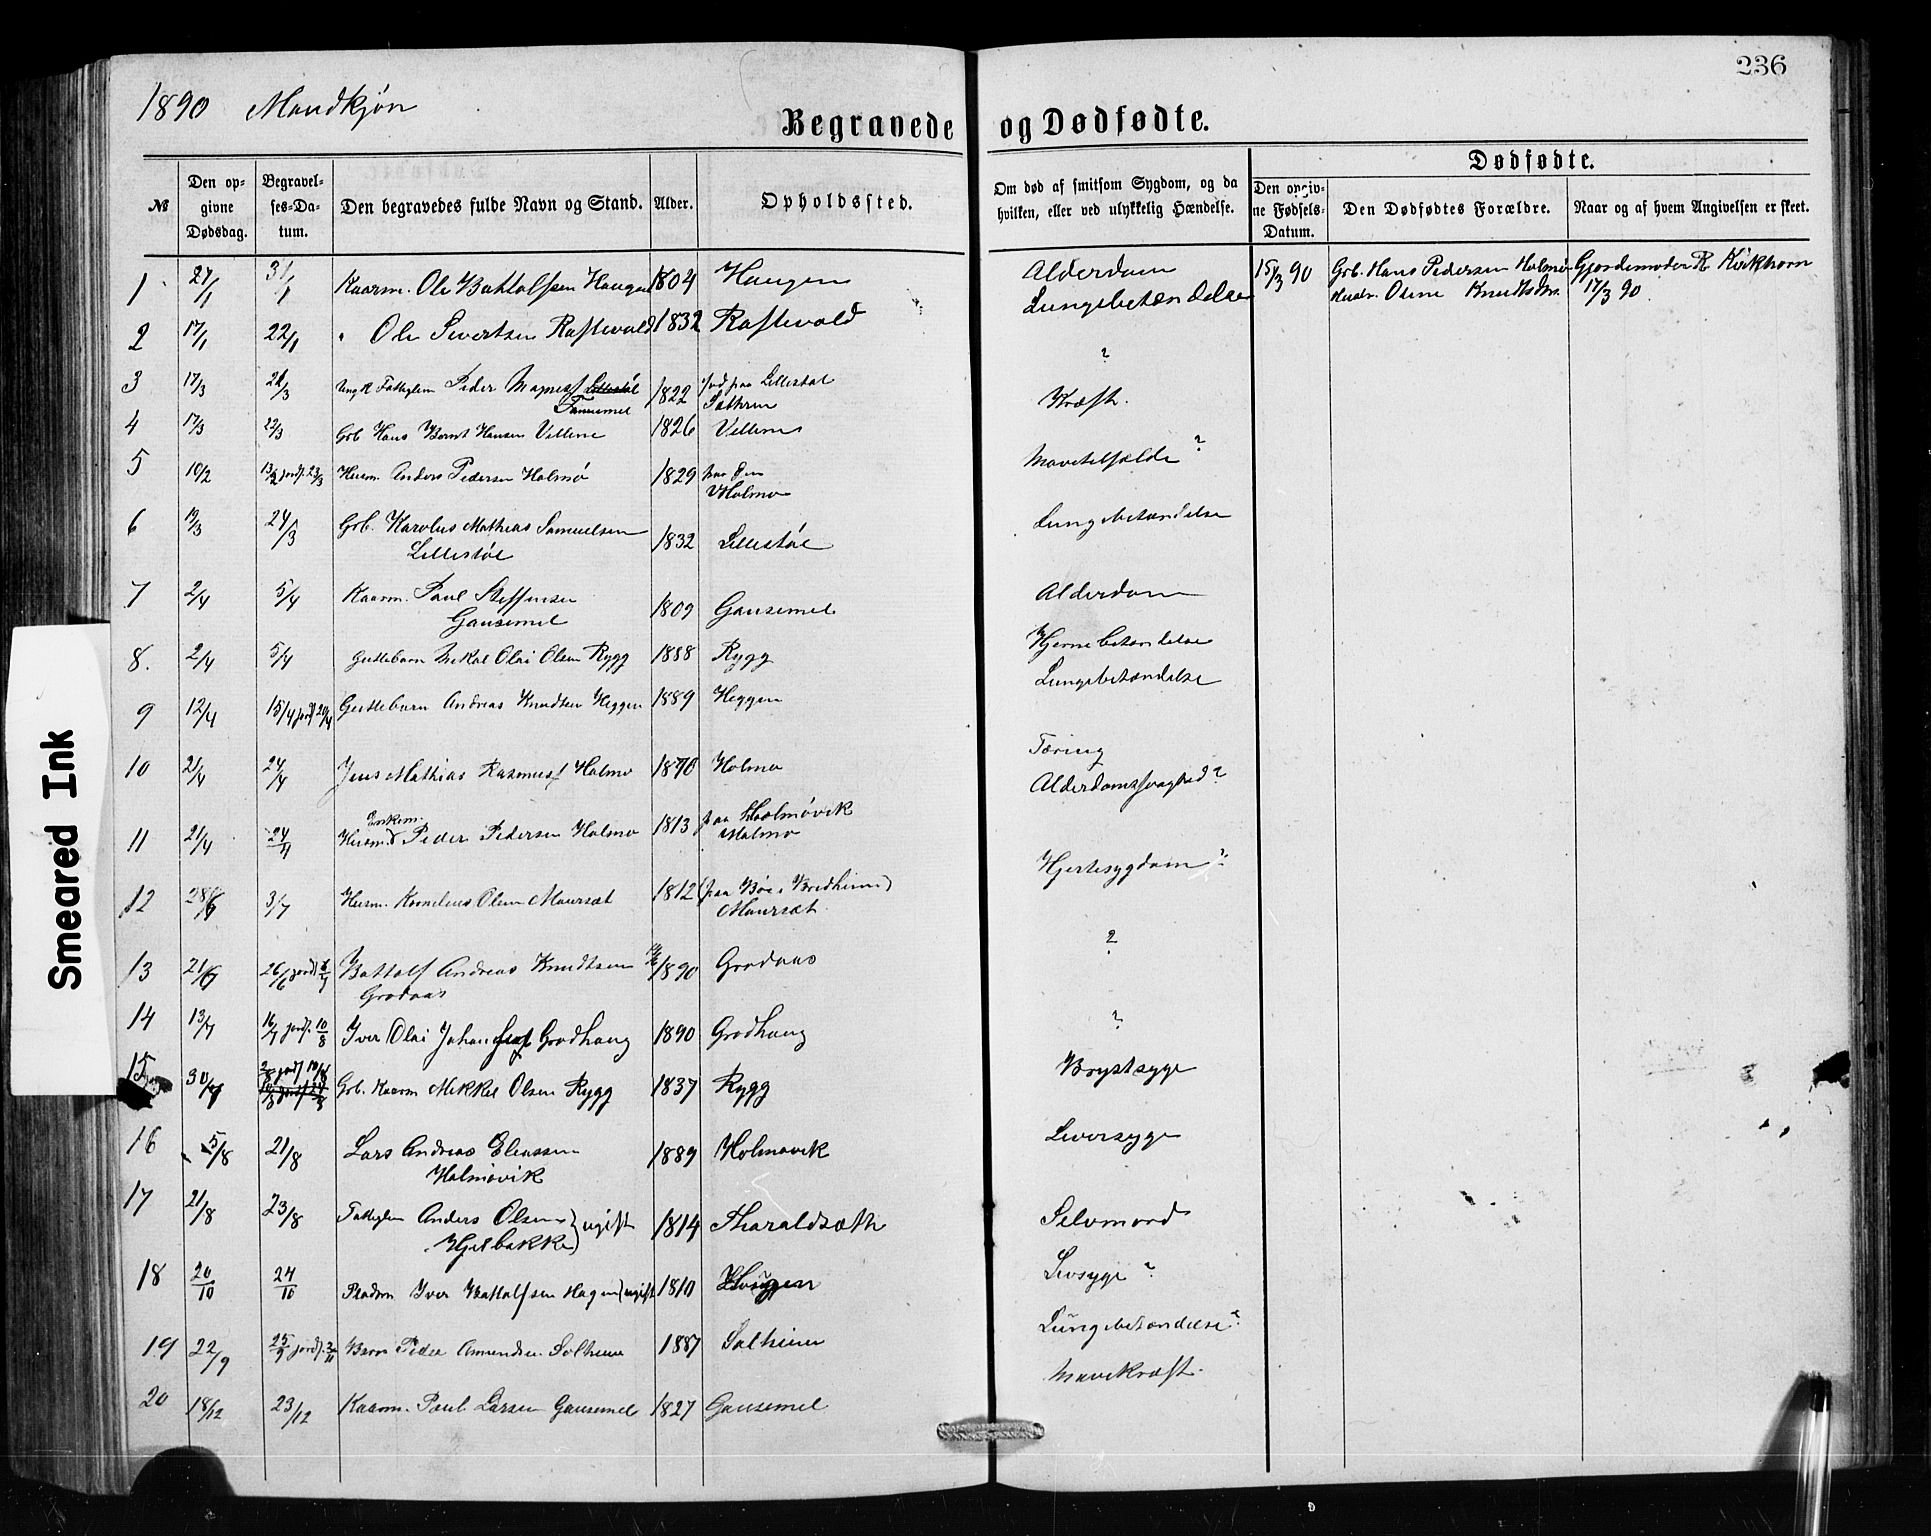 236
1890 Mandkjøn
Begravede og Dødfødte.
Dødfødte.
№
Den opgivne Dødsdag.
Begravelses-Datum.
Den begravedes fulde Navn og Stand.
Alder.
Opholdssted.
Om død af smitsom Sygdom, og da hvilken, eller ved ulykkelig Hændelse.
Den opgivne Fødsels-Datum.
Den Dødfødtes Forældre.
Naar og af hvem Angivelsen er skeet.
1 27/1 31/1 Kaarm. Ole Battolfsen Haugen 1804 Haugen Alderdom 15/3 90 Grb. Hans Pedersen Holmø Gjordemoder R Kirkhorn
Hustr. Oline Knutsdtr. 17/3 90.
2 17/1 22/1 " Ole Sivertsen Raftevold 1832 Raftevold Lungebetændelse
?
3 17/3 21/3 Ungk Fattiglem Peder Magnesf Lillestøl 1822 Lillestøl
4 17/3 22/3 Grb Hans Bernt Hansen 1826 Kræft.
5 10/2 13/2 jordf. 23/3 Husm. Anders Pedersen Holmø 1829 Holmø ?
6 19/3 24/3 Grb. Karolus Mathias Samuelsen
Lillestøl 1832 Lillestøl Lungebetændelse
7 2/4 5/4 Kaarm. Paul Steffensen
Gausemel 1809 Gausemel Alderdom
8. 2/4 5/4 Gutlebarn Mikal Olai Olsen Rygg 1888 Rygg Hjernebetændelse
9 12/4 15/4 jordf 20/4 Guttebarn Andreas Knudtsen Heggen 1889 Heggen Lungebetændelse
10 21/4 24/4 Jens Mathias Rasmusf Holmø 1870 Holmø Tæring
11 21/4 24/4 Husm. Enkem. Peder Pedersen Holmø 1813 paa Holmøvik
Holmø Alderdomssvaghed?
12 28/6 3/7 Husm. Kornelius Olsen Maursæt 1812 (paa Bøe i Bredheim)
Maursæt Hjertesygdom?
13 21/6 26/6 jordf Battolf Andreas Knudtsen
Grodaas 1890 Grodaas ?
14 13/7 16/7 jordf. 10/8 Iver Olai Johan Grodhaug 1890 Grodhaug ?
15 30/7 2/8 jordf 10/8 Grb. Kaarm Mikkel Olsen Rygg 1837 Rygg Brystsyge
16 5/8 21/8 Lars Andreas Eliassen
Holmøvik 1889 Holmøvik Leversyge
17 21/8 23/8 Fattiglem Anders Olsen
Hjelbakke) ugift 1814 Tharaldsæth Selvmord
18 20/10 24/10 Iver Battolfsen Hagen (ugift 1810 Haugen ?
19 22/9 25/9 jordf. 2/11 Barn Peder Amundsen Solheim 1887 Solheim Lungebetændelse?
20 18/12 23/12 Kaarm. Paul Larsen Gausemel 1827 Gausemel Mavekræft.
Smeared Ink